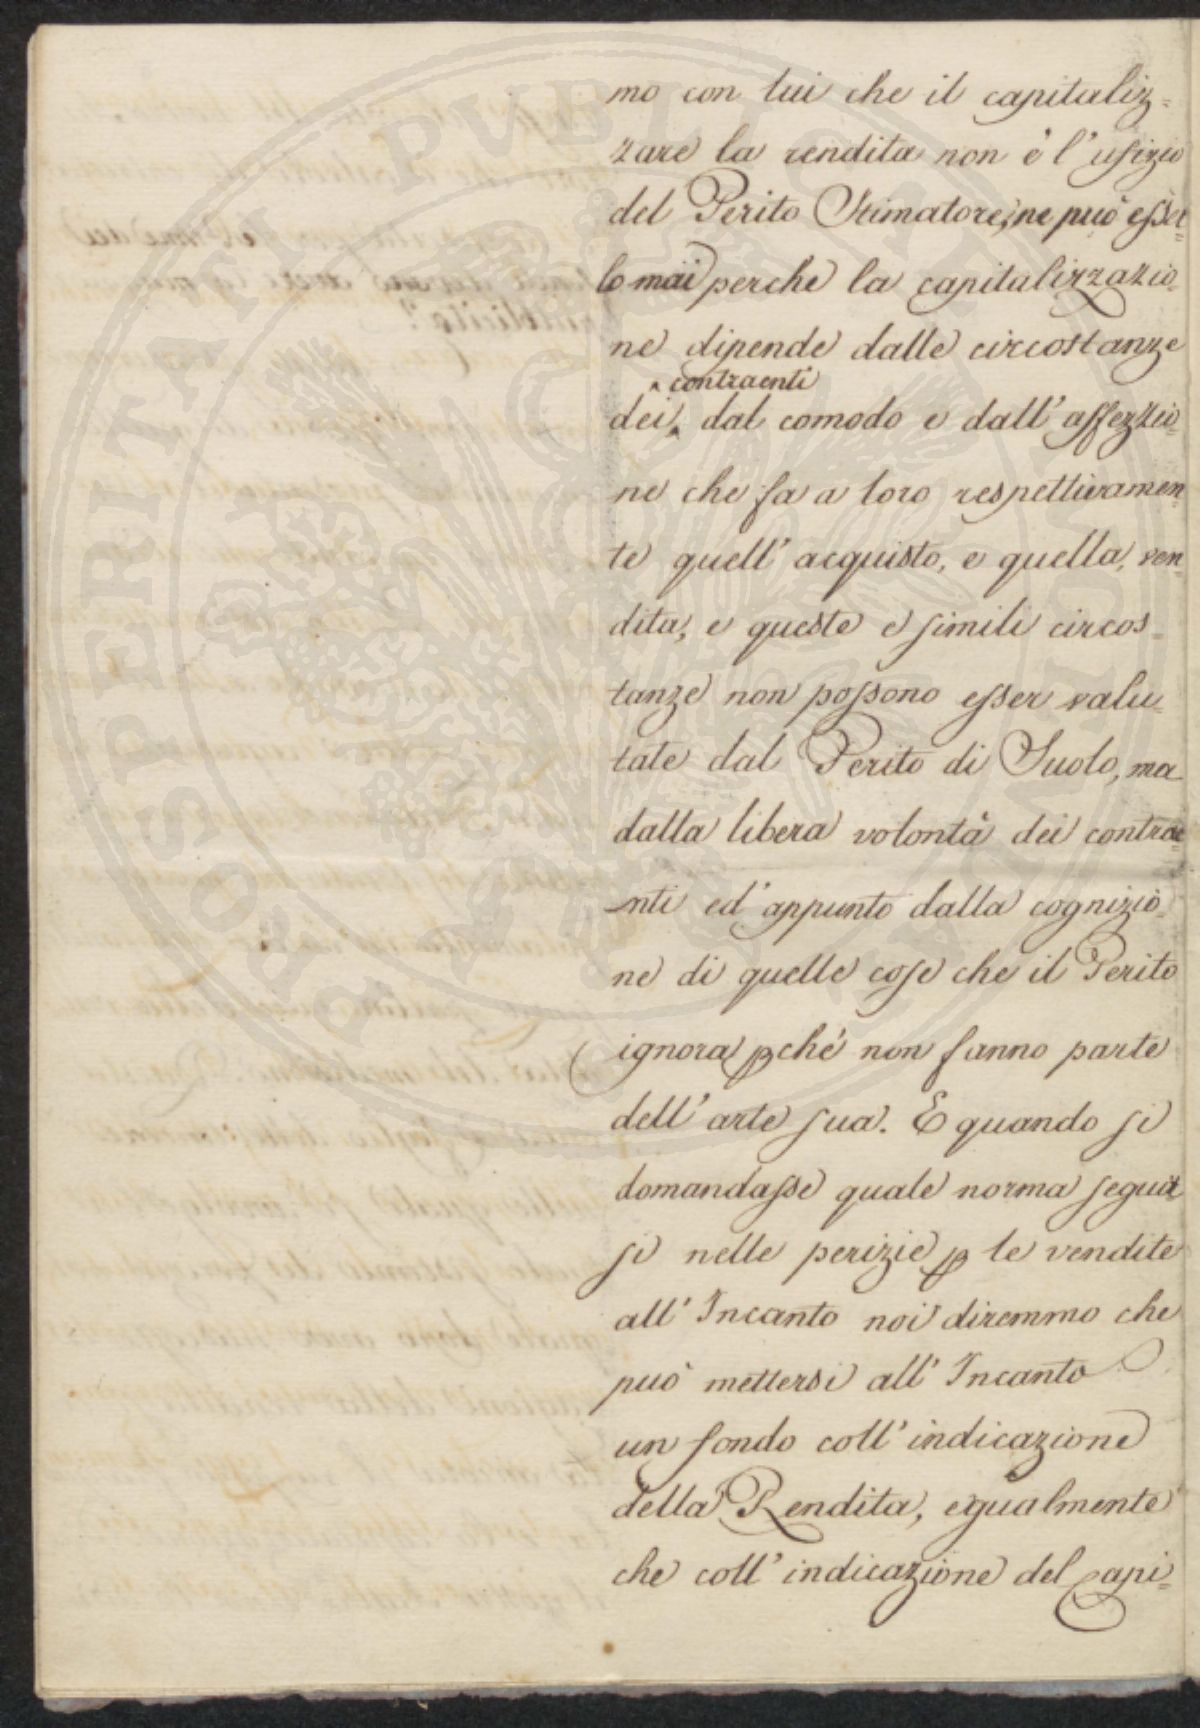 mo con lui che il capitaliz=
zare la rendita non è l'ufizio
del Perito Stimatore, ne può esser=
lo mai perche la capitalizzazio=
ne dipende dalle circostanze
contraenti
dei, dal comodo e dall'affezzio=
ne che fa a loro respettivamen=
te quell'acquisto, e quella, ven=
dita, e queste e simili circos=
tanze non possono esser valu=
tate dal Perito di Suolo, ma
dalla libera volontà dei contrae=
nti ed'appunto dalla cognizio=
ne di quelle cose che il Perito
ignora pché non fanno parte
dell'arte sua. E quando si
domandasse quale norma segua=
si nelle perizie p le vendite
all'Incanto noi diremmo che
può mettersi all'Incanto
un fondo coll'indicazione
della Rendita, egualmente
che coll'indicazione del capi=
PROSPERITATI PVBLICAE